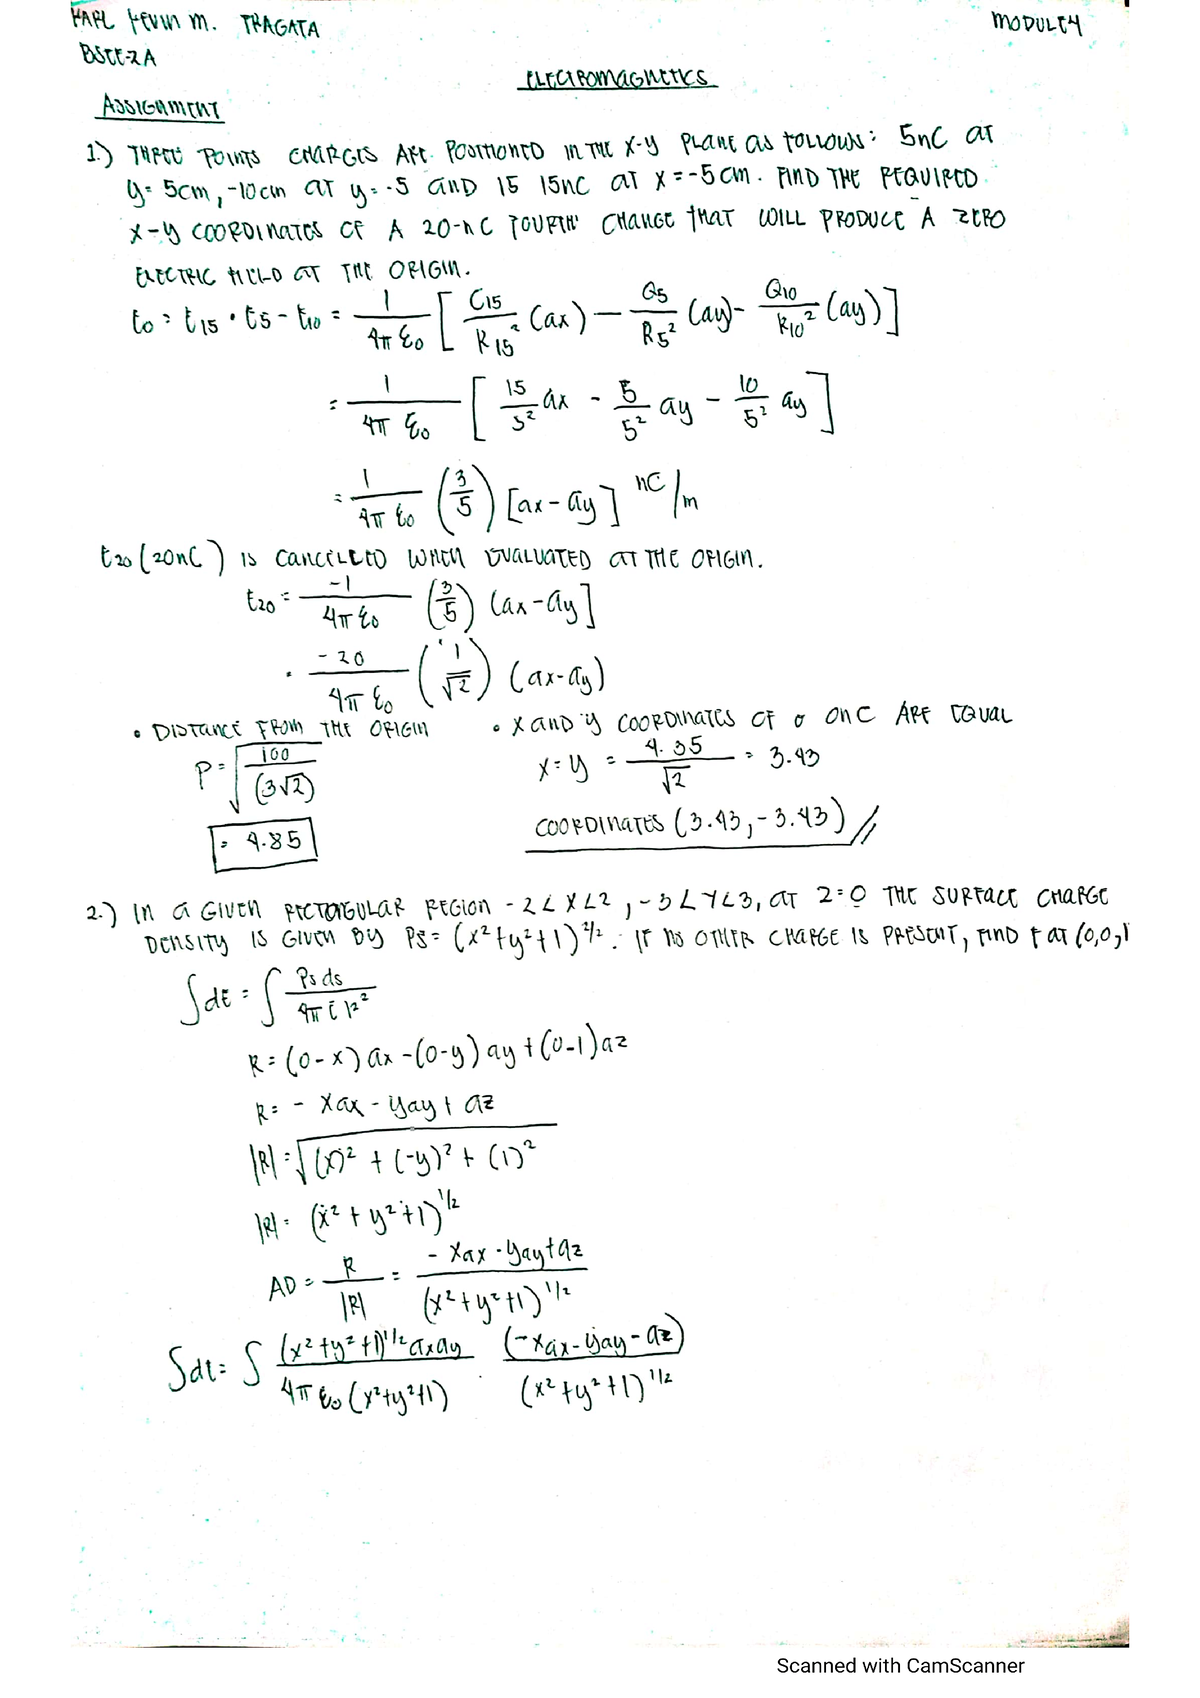 KARL KEVIN M. TRAGATA
MODULE 4
BSEE-2A
ELECTROMAGNETICS
ASSIGNMENT
1.) THREE POINTS CHARGES ARE POSITIONED IN THE X-Y PLANE AS FOLLOWS: 5nC AT
y= 5cm, -10cm AT y= -5 AND 15 15nC AT X=-5cm. FIND THE REQUIRED
X-Y COORDINATES OF A 20-nC FOURTH CHANGE THAT WILL PRODUCE A ZERO
ELECTRIC FIELD AT THE ORIGIN.
E0 = E15 • E5 - E10 = 1/4π ε0 [ C15/R15² (ax) - Q5/R5² (ay) - Q10/R10² (ay) ]
= 1/4π ε0 [ 15/5² ax - 5/5² ay - 10/5² ay ]
= 1/4π ε0 (3/5) [ax - ay] nC/m
E20 (20nC) IS CANCELLED WHEN EVALUATED AT THE ORIGIN.
E20 = -1/4π ε0 (3/5) (ax-ay]
= -20/4π ε0 (1/√2) (ax-ay)
• DISTANCE FROM THE ORIGIN
P = √100/(3√2)
= 4.85
• X AND Y COORDINATES OF 0 0nC ARE EQUAL
X=Y = 4.85/√2 = 3.43
COORDINATES (3.43, -3.43) //
2.) IN A GIVEN RECTANGULAR REGION -2<X<2, -3<Y<3, AT Z=0 THE SURFACE CHARGE
DENSITY IS GIVEN BY Ps = (x²+y²+1)^3/2. IF NO OTHER CHARGE IS PRESENT, FIND E AT (0,0,1
∫dE = ∫ Ps ds/4π ε R²
R = (0-x) ax -(0-y) ay + (0-1) az
R = - xax - yay + az
|R| = √(x)² + (-y)² + (1)²
|R| = (x² + y² + 1)^1/2
AD = R/|R| = - xax - yay + az/(x²+y²+1)^1/2
∫dE = ∫ (x²+y²+1)^1/2 dxdy/4π ε0 (x²+y²+1) · (-xax - yay - az)/(x²+y²+1)^1/2
Scanned with CamScanner